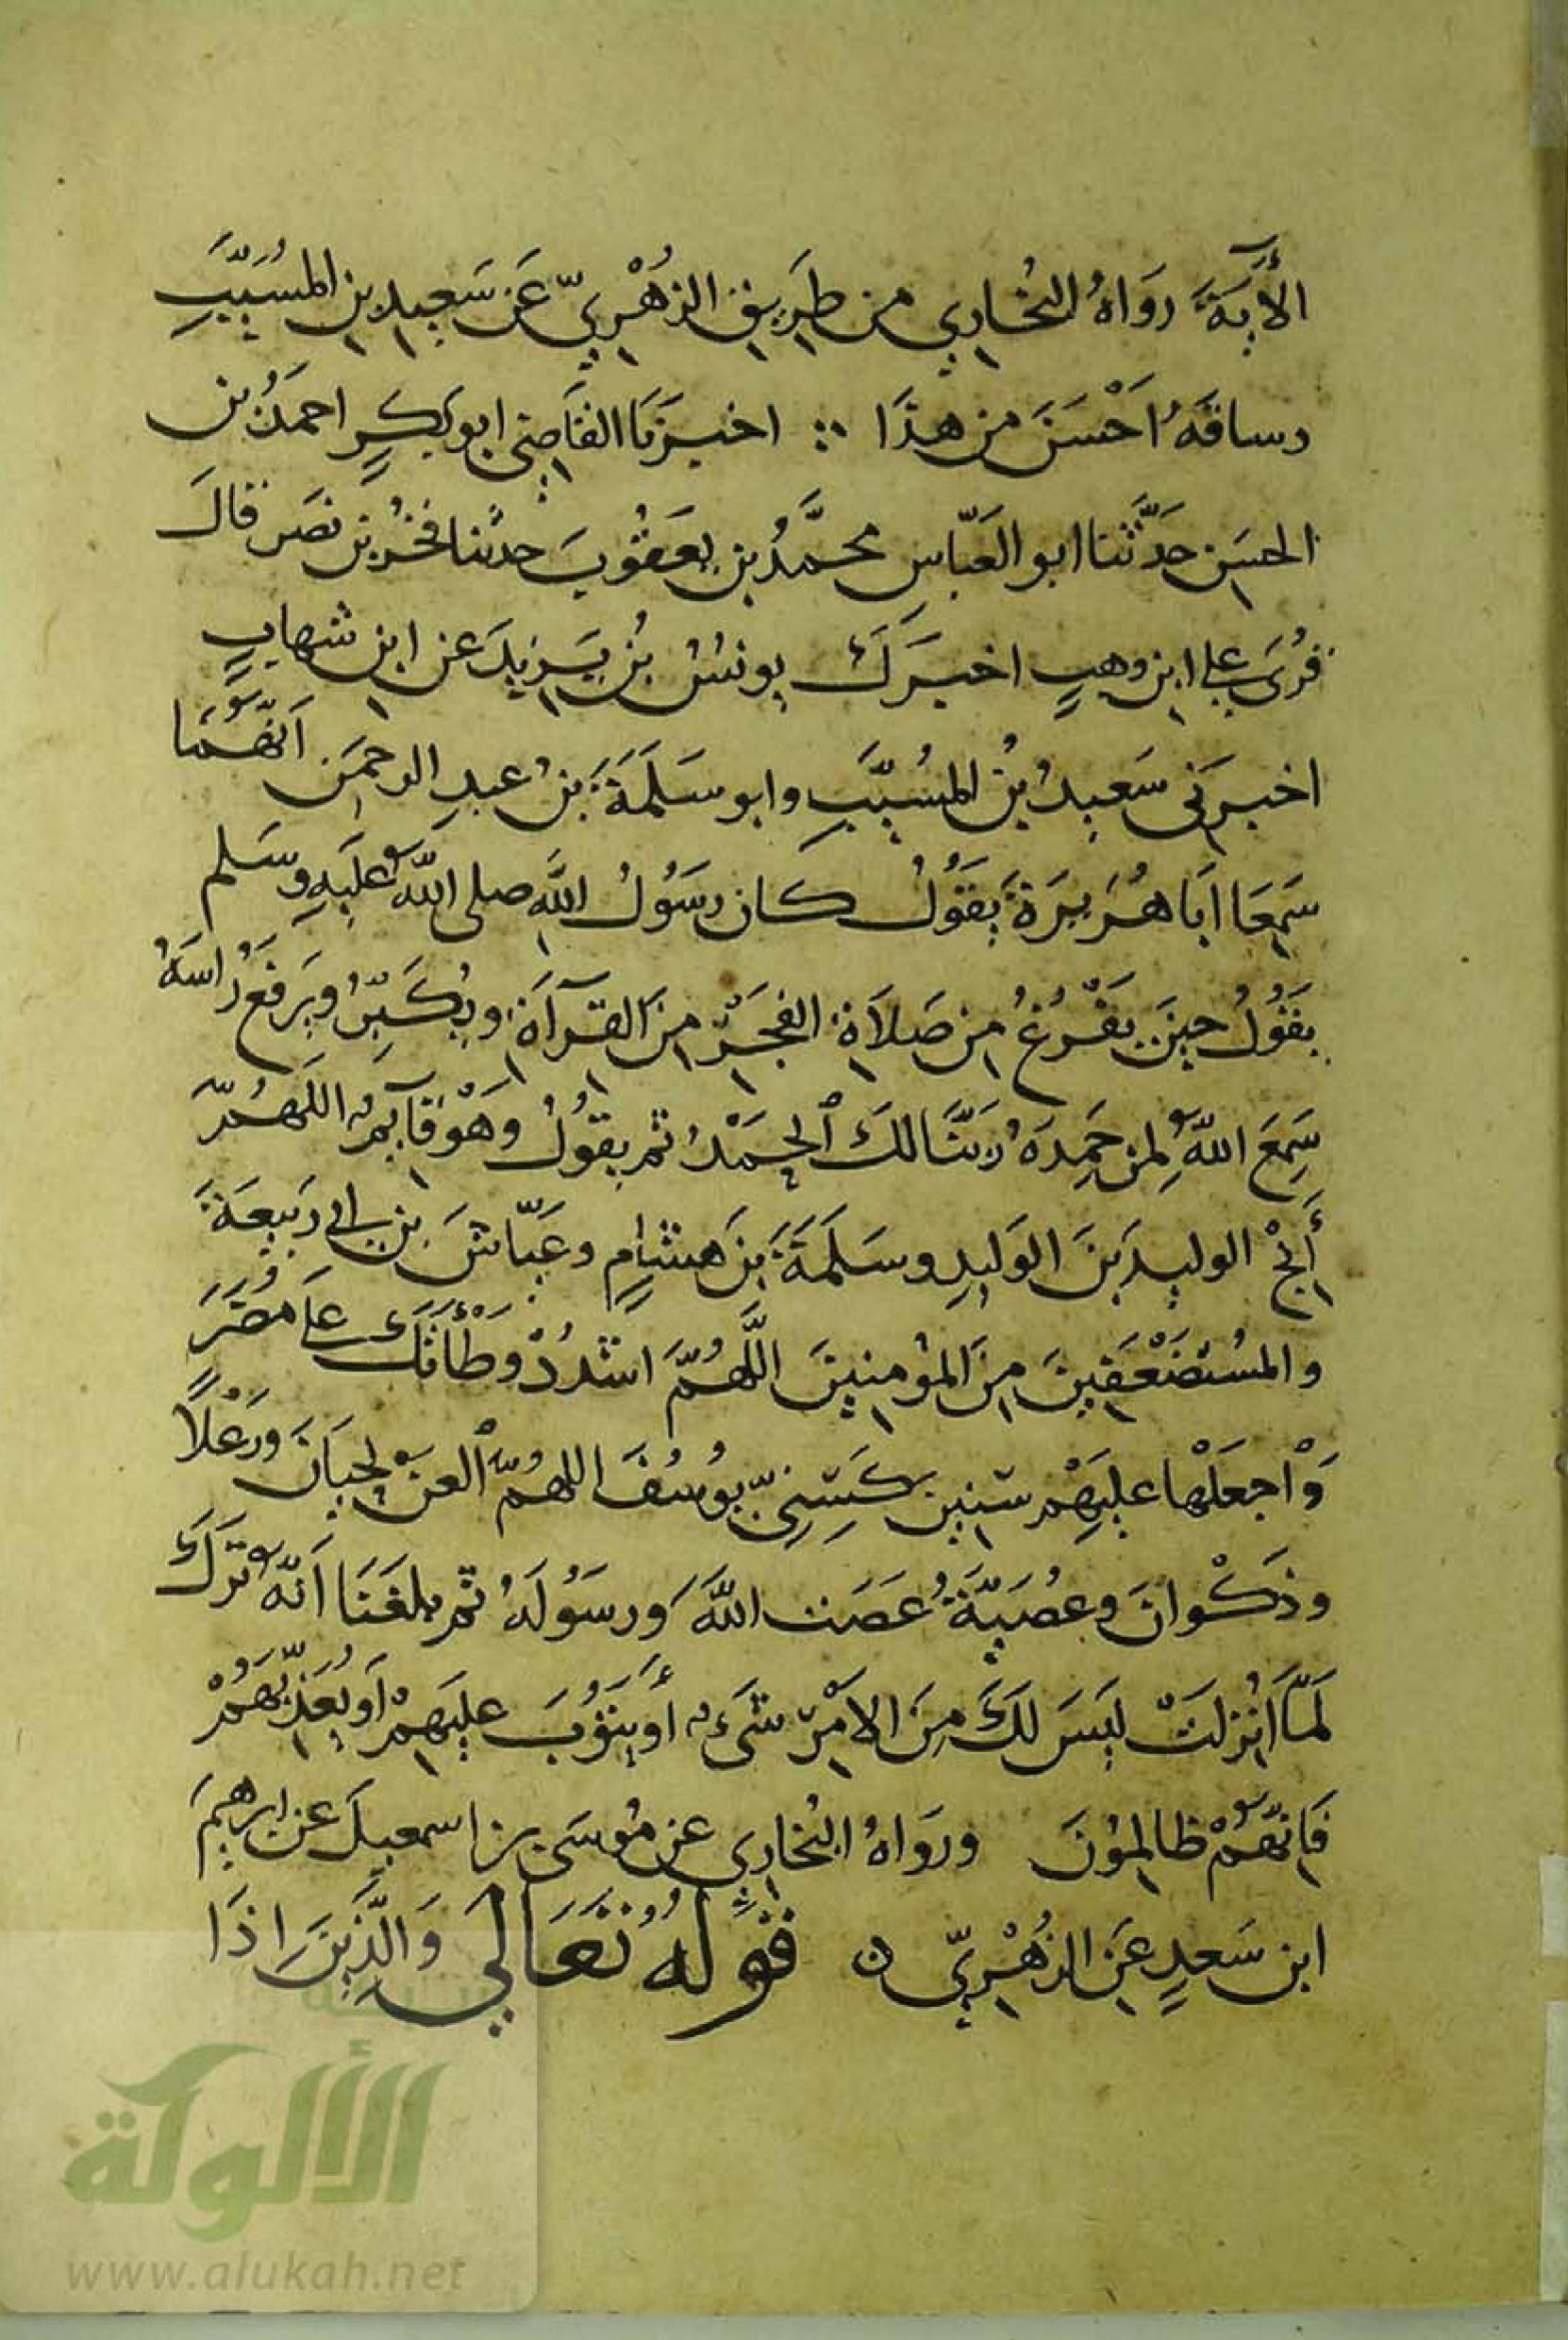 الآيَةَ رَوَاهُ البُخاري من طَريق الزهْريّ عَن سَعيد بن المسُيَّبِ
وساقَهُ احْسَنَ من هذَا اخبرَنَا القَاضِى ابو بكرٍ احمدُ بن
الحسَن حَدَّثنا ابو العَبّاسِ محمَّدُ بن يعَقوُبَ حدثنا بحْرُ بن نصَر قالَ
قُرىَ على ابن وهبٍ اخبرَكَ يونسُ بنُ يَزيدَ عن ابن شهابٍ
اخبرَنى سَعيدُ بنُ المسُيَّبِ وابو سَلَمَةَ بنُ عبدِ الرحمَن اَنهُّمَا
سَمِعَا ابَا هُرَيرَةَ يَقوُلُ كان رسَوُلُ اللَّهِ صلى اللهُ عليَهِ وسَلم
يقَوُلُ حينَ يَفْرُغُ من صَلاَةِ الفجَرْ منَ القرآةِ ويُكَبّرُ ويَرفَعُ رُاسَهُ
سَمِعَ اللهُ لمِن حَمِدَهُ رَبَّنَا لكَ الحَمَدُ ثم يقوُلُ وهَوْ قآيمٌ اللهُمّ
أَنجْ الوليدَ بنَ الوَليدِ وسَلَمَةَ بنَ هِشَامٍ وعَيّاشَ بن ابى ربَيعَةَ
والمسُتضَعْفَينَ منَ المؤمنينَ اللَّهُمّ اشدُدْ وَطْأتَكَ علَى مضُرَ
وَاجعَلْها عليَهِمْ سنين كَسِنِىّ يوُسُفَ اللهُمّ العنَ لِحيَانَ ورَعْلاً
وذَكْوانَ وعُصَيّةَ عَصَت اللهَ ورسَوُلَهُ ثم بلغَنَا اَنهُّ تَرَكَ
لَمّا انُزلَتْ ليَسَ لَكَ مِنَ الامْر شىَءٌ أوَ يتوُبَ عليَهِمْ اَو يعُذّبهَمُْ
فَانهُّمْ ظالموُنَ ورَواهُ البُخاري عن موُسىَ بن اسمعيلَ عن ابرهيمَ
ابن سَعدٍ عَن الزهُرْيّ ن قوَلُهُ تعَالَى وَالَّذيَنَ اذَا
شبكة
الألوكة
www.alukah.net